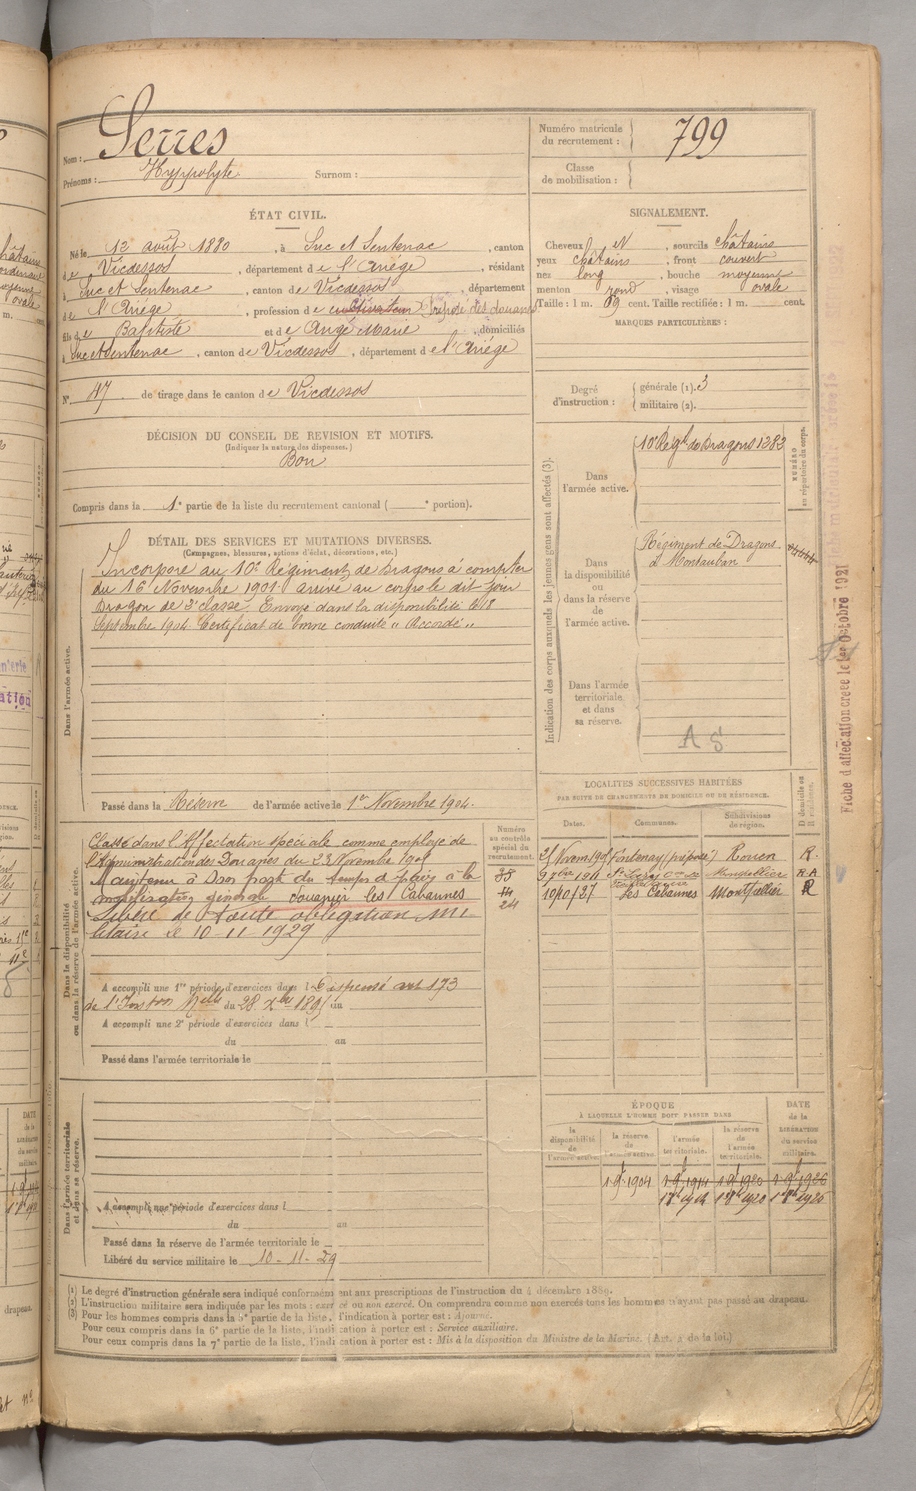 Nom : Serres
Prénoms : Hyppolyte Surnom :
Numéro matricule du recrutement : 799
Classe de mobilisation :
ÉTAT CIVIL.
Né le 12 août 1880, à Suc et Sentenac, canton
de Vicdessos, département de l'Ariége, résidant
à Suc et Sentenac, canton de Vicdessos, département
de l'Ariége, profession de cultivateur préposé des douanes
fils de Baptiste et de Ange Marie, domiciliés
à Suc et Sentenac, canton de Vicdessos, département de l'Ariége
N° 47 de tirage dans le canton de Vicdessos
SIGNALEMENT.
Cheveux N, sourcils châtains
yeux châtains, front couvert
nez long, bouche moyenne
menton rond, visage ovale
Taille : 1 m. 69 cent. Taille rectifiée : 1 m. cent.
MARQUES PARTICULIÈRES :
Degré d'instruction : générale (1). 3
militaire (2).
DÉCISION DU CONSEIL DE REVISION ET MOTIFS.
(Indiquer la nature des dispenses.)
Bon
Compris dans la 1e partie de la liste du recrutement cantonal ( e portion).
DÉTAIL DES SERVICES ET MUTATIONS DIVERSES.
(Campagnes, blessures, actions d'éclat, décorations, etc.)
Dans l'armée active.
Incorporé au 10e Régiment de Dragons à compter
du 16 Novembre 1901 arrivé au corps le dit jour
Dragon de 2e classe. Envoyé dans la disponibilité le 18
Septembre 1904 Certificat de bonne conduite "Accordé"
Passé dans la Réserve de l'armée active le 1er Novembre 1904.
Indication des corps auxquels les jeunes gens sont affectés (3).
NUMÉRO au répertoire du corps.
Dans l'armée active.
10e Régt de Dragons 1382
Dans la disponibilité ou dans la réserve de l'armée active.
Régiment de Dragons
d Montauban
Dans l'armée territoriale et dans sa réserve.
A S
Fiche d'affectation créée le 1er Octobre 1921
Dans la disponibilité ou dans la réserve de l'armée active.
Numéro au contrôle spécial du recrutement.
Classé dans l'Affectation spéciale comme employé de
l'Administration des Douanes du 23 Novembre 1908
Maintenu à son poste du temps de paix à la
mobilisation générale douanier les Cabannes
Libéré de toute obligation mi-
litaire le 10-11-1929
A accompli une 1re période d'exercices dans l Dispensé art 173
de l'Inston Nelle du 28 Xbre 1895 au
A accompli une 2e période d'exercices dans l
du au
Passé dans l'armée territoriale le
LOCALITÉS SUCCESSIVES HABITÉES
PAR SUITE DE CHANGEMENTS DE DOMICILE OU DE RÉSIDENCE.
Dates. Communes. Subdivisions de région. D. domicile ou R. résidence.
Fontenay (préposé) Rouen R.
Montpellier R.A
les Cabannes Montpellier R
Dans l'armée territoriale et dans sa réserve.
A accompli une période d'exercices dans l
du au
Passé dans la réserve de l'armée territoriale le
Libéré du service militaire le 10-11-29
ÉPOQUE
À LAQUELLE L'HOMME DOIT PASSER DANS
DATE de la LIBÉRATION du service militaire.
la disponibilité de l'armée active. la réserve de l'armée active. l'armée territoriale. la réserve de l'armée territoriale.
(1) Le degré d'instruction générale sera indiqué conformément aux prescriptions de l'instruction du 4 décembre 1889.
(2) L'instruction militaire sera indiquée par les mots : exercé ou non exercé. On comprendra comme non exercés tous les hommes n'ayant pas passé au drapeau.
(3) Pour les hommes compris dans la 5e partie de la liste, l'indication à porter est : Ajourné.
Pour ceux compris dans la 6e partie de la liste, l'indication à porter est : Service auxiliaire.
Pour ceux compris dans la 7e partie de la liste, l'indication à porter est : Mis à la disposition du Ministre de la Marine. (Art. 4 de la loi.)